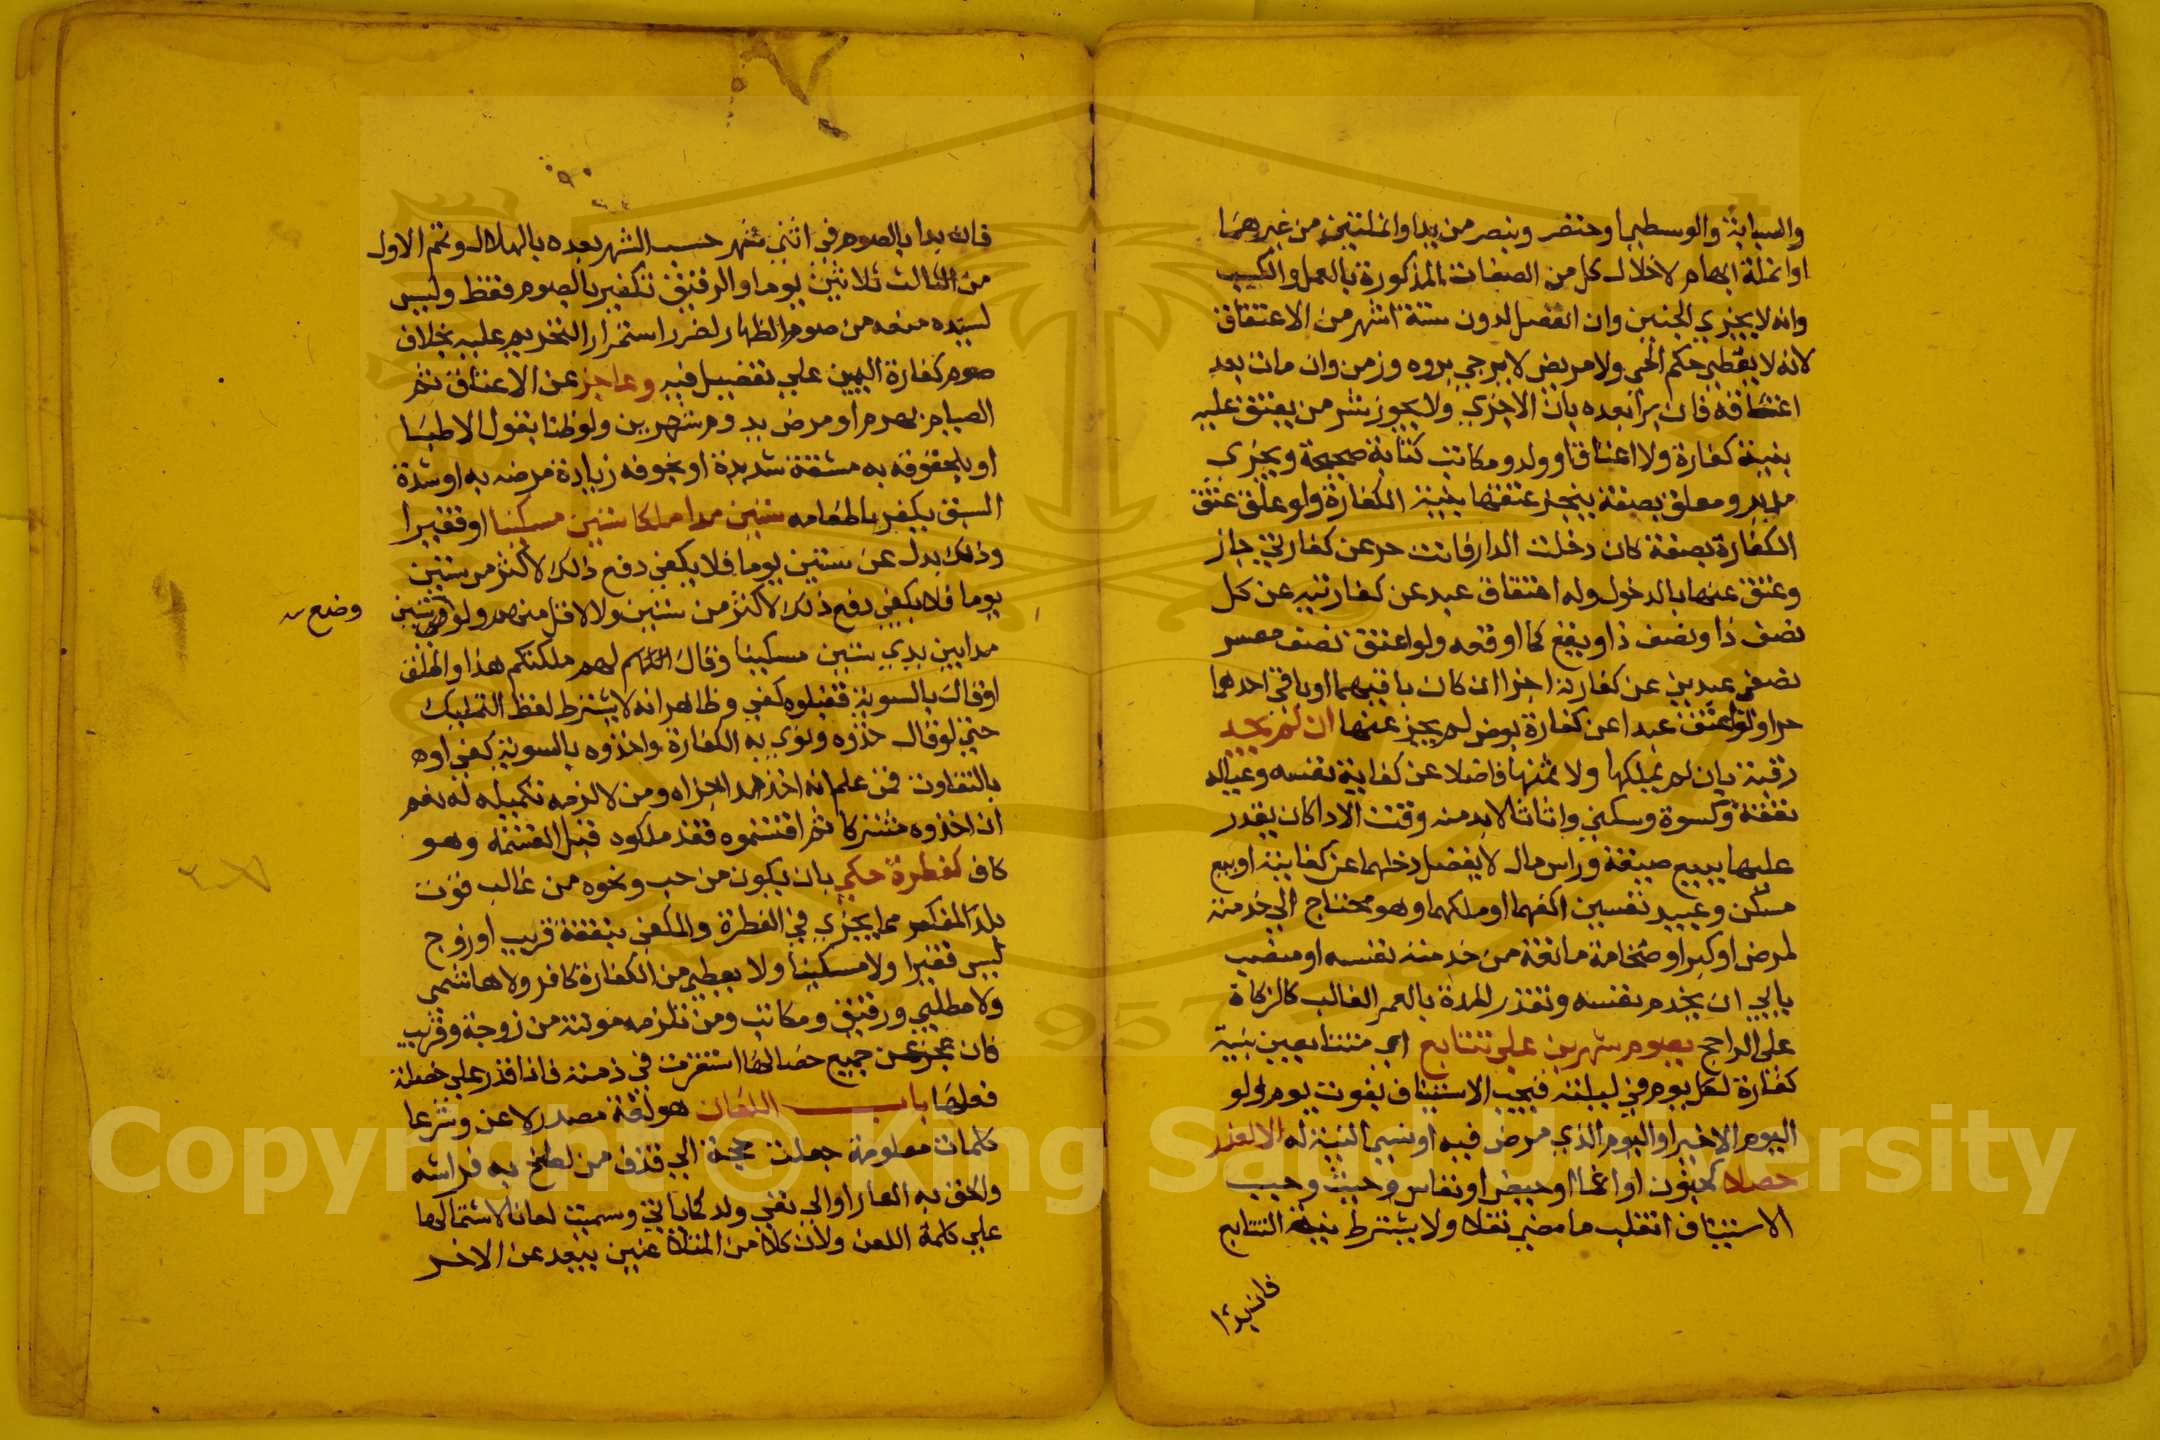 والسبابة والوسطي او خنصر وبنصر من يد او انملتين من غيرهما
او انملة ابهام لاخلال كل من الصفات المذكورة بالعمل والكسب
وانه لا يجزي الجنين وان انفصل لدون ستة اشهر من الاعتقاق
لانه لا يعطي حكم الحي ولا مريض لا يرجي بروه وزمن وان مات بعد
اعتقاقه فان برا بعده بان الاجزي ولا يجوز شر من يعتق عليه
بنية كفارة ولا اعتاق ام ولد ومكاتب كتابة صحيحة ويجزي
مدبر ومعلق بصفة ينجز عتقها بنية الكفارة ولو علق عتق
الكفارة بصفة كان دخلت الدار فانت حر عن كفارتي جاز
وعتق عنها بالدخول وله اعتقاق عبد عن كفارتيه عن كل
نصف ذا ونصف ذا ويقع كما اوقعه ولو اعتق نصف معسر
نصفي عبدين عن كفارته اجزا ان كان باقيهما او باقي احدهما
حرا ولو اعتق عبدا عن كفارة بعوض لم يجز عنها ان لم يجد
رقبة بان لم يملكها ولا ثمنها فاضلا عن كفاية نفسه وعياله
نفقة وكسوة وسكني واثاثا لابد منه وقت الادا كان يقدر
عليها ببيع ضيعة وراس مال لا يفضل دخلهما عن كفايته او بيع
مسكن وعبيد نفسين الفهما او ملكهما وهو محتاج الي خدمته
لمرض او كبر او ضخامة مانعة من خدمته نفسه او منصب
يابي ان يخدم نفسه وتقدر المدة بالعمر الغالب كالزكاة
على الراجح يصوم شهرين علي تتابع اي متتابعين بنية
كفارة لكل يوم في ليلته فيجب الاستيناف بفوت يوم ولو
اليوم الاخير او اليوم الذي مرض فيه او نسي النية له الا لعذر
حصلا كجنون او اغما او حيض او نفاس وحيث وجب
الاستيناف انقلب ما مضي نفلا ولا يشترط نية التتابع
فان بدا
فان بدا بالصوم في اثني شهر حسب الشهر بعده بالهلال وتمم الاول
من الثالث ثلاثين يوما والرقيق تكفير بالصوم فقط وليس
لسيده منعه من صوم الظهار لضرر استمرار التحريم عليه بخلاف
صوم كفارة اليمين علي تفصيل فيه وعاجز عن الاعتاق ثم
الصيام بهرم او مرض يدوم شهرين ولو ظنا بقول الاطبا
او يلحقوقه به مشقة شديدة او بخوفه زيادة مرضه به او شدة
السبق يكفر باطعامه ستين مدا مملكا ستين مسكينا او فقيرا
وذلك بدل عن ستين يوما فلا يكفي دفع ذلك لاكثر من ستين
يوما فلا يكفي دفع ذلك لاكثر من ستين ولا لاقل منهم ولو ستين
وضع
مدا بين يدي ستين مسكينا وقال لهم ملكتكم هذا واطلق
او قال بالسوية فقبلوه كفي وظاهر انه لا يشترط لفظ التمليك
حتي لو قال خذوه ونوي به الكفارة واخذوه بالسوية كفي او ه
بالتفاوت فمن علم انه اخذ مدا اجزاه ومن لا لزمه تكميله له نعم
ان اخذوه مشتركا ثم اقتسموه فقد ملكوه قبل القسمة وهو
كاف كفطرة حكي بان يكون من حب ونحوه من غالب قوت
بلد المفكر مما يجزي في الفطرة والمكفي بنفقة قريب او زوج
ليس فقيرا ولا مسكينا ولا يعطي من الكفارة كافر ولا هاشمي
ولا مطلبي ورقيق ومكاتب ومن تلزمه مونته من زوجة وقريب
فان عجز عن جميع خصالها استقرت في ذمته فاذا قدر علي خصلة
فعلها باب اللعان هو لغة مصدر لاعن وشرعا
كلمات معلومة جعلت حجة الي قذف من لطخ به فراشه
والحق به العار او الي نفي ولد كما ياتي وسميت لعانا لاشتمالها
علي كلمة اللعن ولان كلا من المتلاعنين يبعد عن الاخر